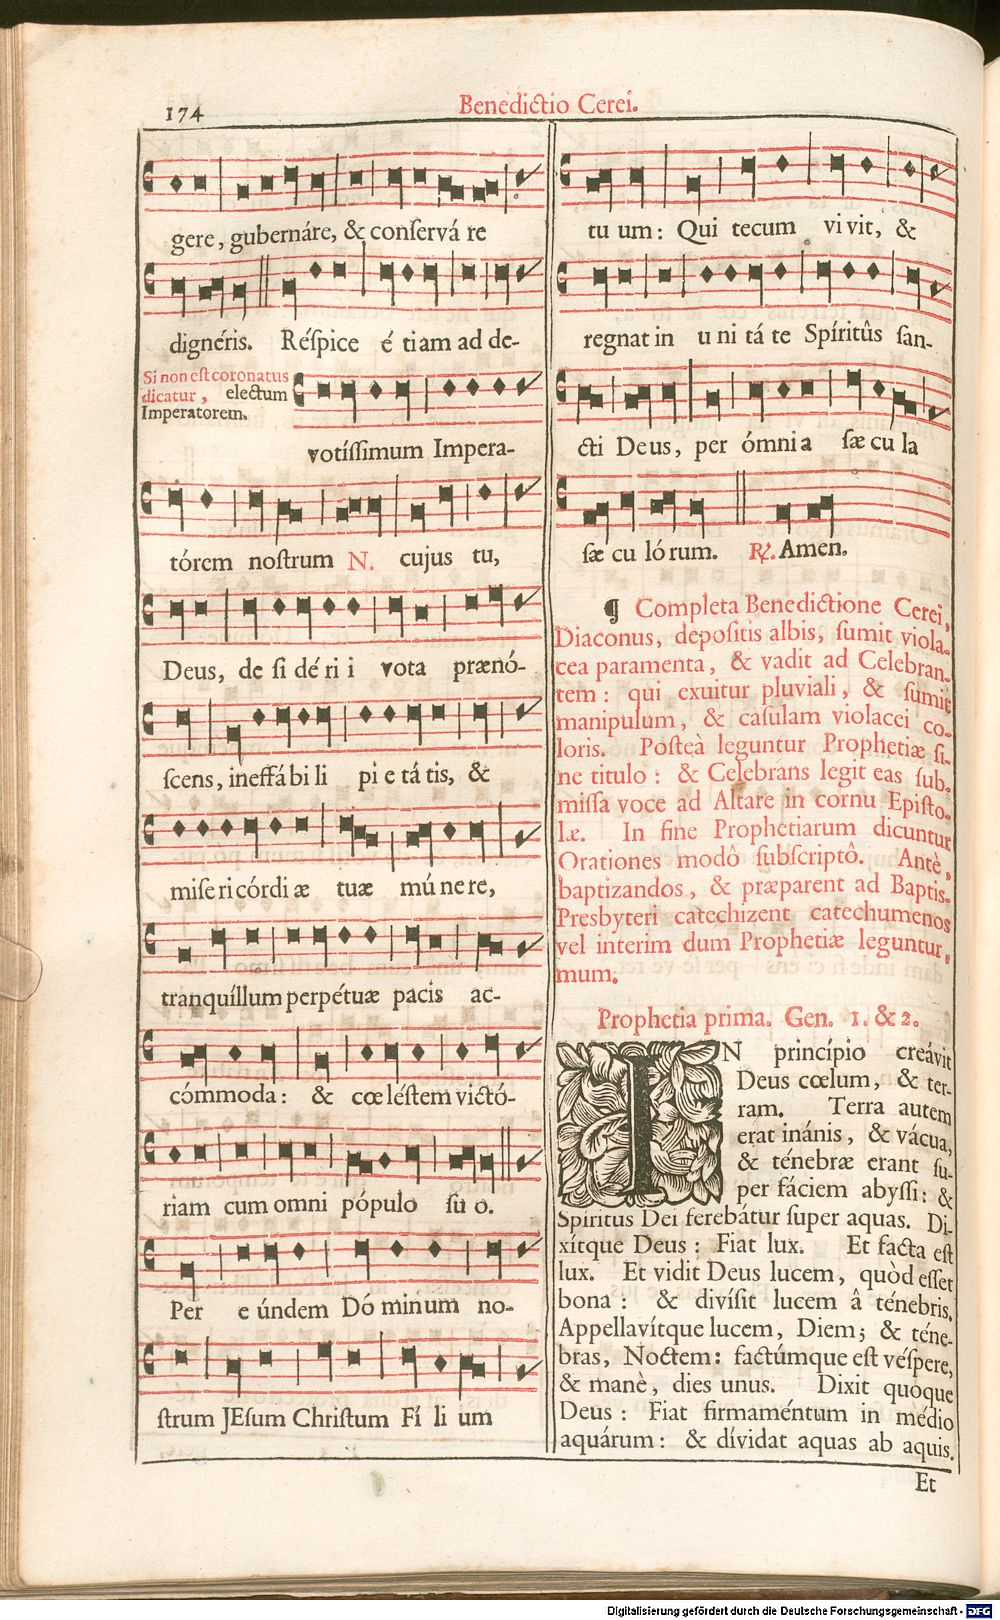 174
Benedictio Cerei.
gere, gubernáre, & conſervá re
dignéris. Réſpice é tiam ad de-
Si non est coronatus
dicatur, electum
Imperatorem.
votíſſimum Impera-
tórem noſtrum N. cujus tu,
Deus, de ſi dé ri i vota prænó-
ſcens, ineffá bi li pi e tá tis, &
miſe ri córdi æ tuæ mú ne re,
tranquíllum perpétuæ pacis ac-
cómmoda: & cœ léſtem victó-
riam cum omni pópulo ſu o.
Per e úndem Dó minum no-
ſtrum JEſum Chriſtum Fí li um
tu um: Qui tecum vi vit, &
regnat in u ni tá te Spíritûs ſan-
cti Deus, per ómni a ſæ cu la
ſæ cu ló rum. ℟. Amen.
¶ Completa Benedictione Cerei,
Diaconus, depoſitis albis, ſumit viola-
cea paramenta, & vadit ad Celebran-
tem: qui exuitur pluviali, & ſumit
manipulum, & caſulam violacei co-
loris. Poſteà leguntur Prophetiæ ſi-
ne titulo: & Celebrans legit eas ſub-
miſſa voce ad Altare in cornu Epiſto-
læ. In fine Prophetiarum dicuntur
Orationes modô ſubſcriptô. Antè,
baptizandos, & præparent ad Baptis-
Presbyteri catechizent catechumenos
vel interim dum Prophetiæ leguntur,
mum.
Prophetia prima. Gen. 1. & 2.
IN princípio creávit
Deus cœlum, & ter-
ram. Terra autem
erat inánis, & vácua,
& ténebræ erant ſu-
per fáciem abyſſi: &
Spíritus Dei ferebátur ſuper aquas. Di-
xítque Deus: Fiat lux. Et facta eſt
lux. Et vidit Deus lucem, quòd eſſet
bona: & divíſit lucem â ténebris.
Appellavítque lucem, Diem; & téne-
bras, Noctem: factúmque eſt véſpere,
& manè, dies unus. Dixit quoque
Deus: Fiat firmaméntum in médio
aquárum: & dívidat aquas ab aquis.
Et
Digitalisierung gefördert durch die Deutsche Forschungsgemeinschaft - DFG